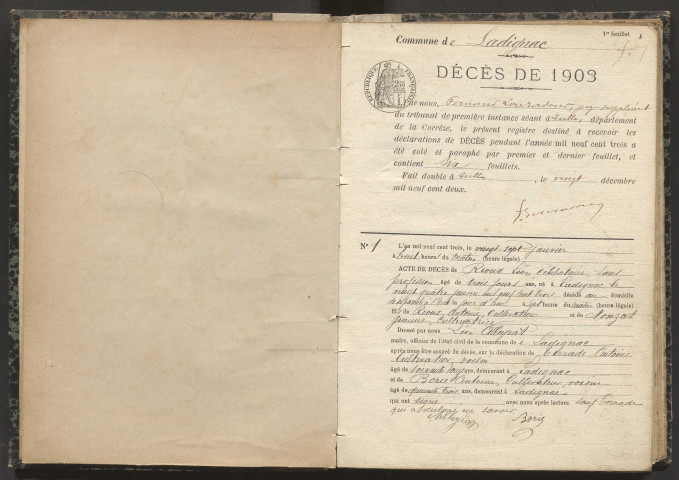 1er feuillet 1
Commune de Ladignac
DÉCÈS DE 1903
RÉPUBLIQUE FRANÇAISE
Par nous, Fernand juge suppléant
du tribunal de première instance séant à Tulle, département
de la Corrèze, le présent registre destiné à recevoir les
déclarations de DÉCÈS pendant l'année mil neuf cent trois a
été coté et paraphé par premier et dernier feuillet, et
contient six feuillets.
Fait double à Tulle, le vingt décembre
mil neuf cent deux.
N° 1 L'an mil neuf cent trois, le vingt sept janvier
à huit heures du matin (heure légale)
ACTE DE DÉCÈS de Rioux Léon célibataire, sans
profession âgé de trois jours ans, né à Ladignac le
vingt quatre janvier mil neuf cent trois décédé au domicile
heure du matin (heure légale)
fils de Rioux Antoine, Cultivateur et de Monzat
Jeanne, Cultivatrice
Dressé par nous Léon
maire, officier de l'état civil de la commune de Ladignac
après nous être assuré du décès, sur la déclaration de Antoine
Cultivateur, voisin
âgé de soixante ans, demeurant à Ladignac
et de Borie Antoine, Cultivateur, voisin
âgé de quarante trois ans, demeurant à Ladignac
qui ont signé avec nous après lecture. sauf
qui a déclaré ne savoir.
Borie